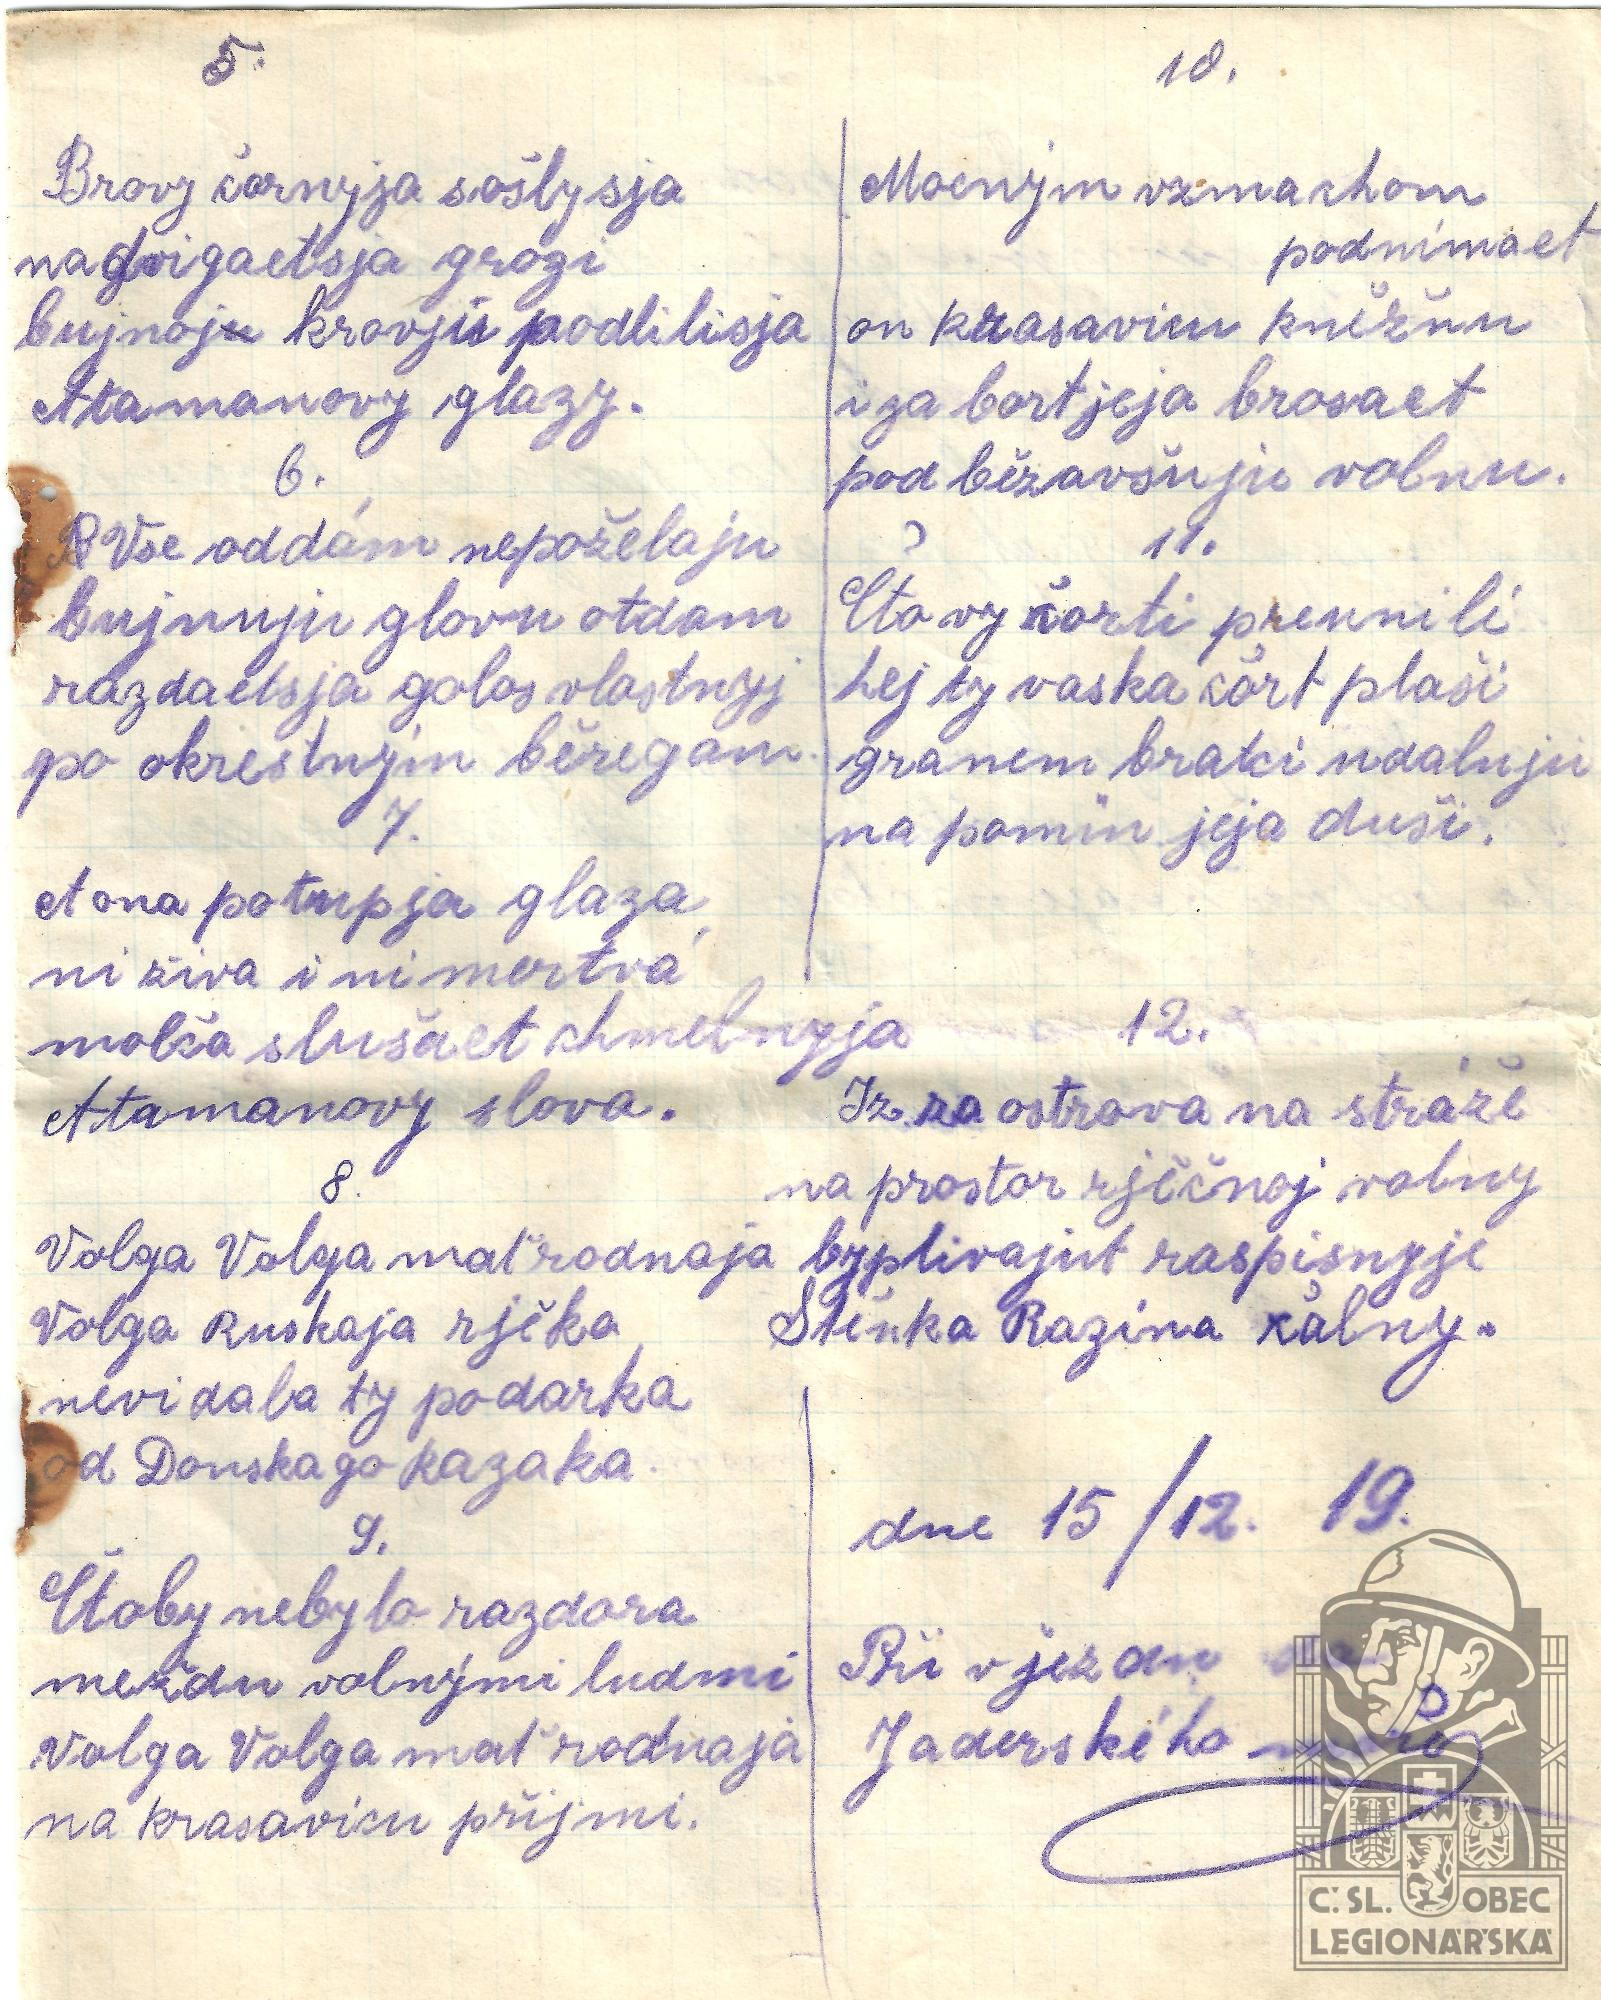 5.
Brovy čornyja sošlysja
nadvigaetsja grozi
bujnoju krovju podlilisja
Atamanovy glazy.
6.
Vse oddám nepoželaju
bujnuju glovu otdam
razdaetsja golos vlastnyj
po okrestným běregam.
7.
A ona potupja glaza,
ni živa i ni mertvá
molča slušaet chmelnyja
Atamanovy slova.
8.
Volga Volga mať rodnaja
Volga Ruskaja rjěka,
nevidala ty podarka
od Donskago kazaka.
9.
Čtoby nebylo razdora
meždu volnými ludmi
Volga Volga mať rodnaja
na krasavicu přijmi.
10.
Mocným vzmachom
podnimaet
on krasavicu kněžnu
i za bort jeja brosaet
pod běžavšuju volnu.
? 11.
Čto vy čorti preunili
hej ty vaska čort plaši
granem bratci udaluju
na pomin jeja duši.
12.
Iz za ostrova na stráže
na prostor rječnoj volny
vyplivajut raspisnyje
Stěnka Razina čalny.
dne 15/12. 19.
Při vjezdu do
Jaderského moře
Č. SL. OBEC
LEGIONÁŘSKÁ